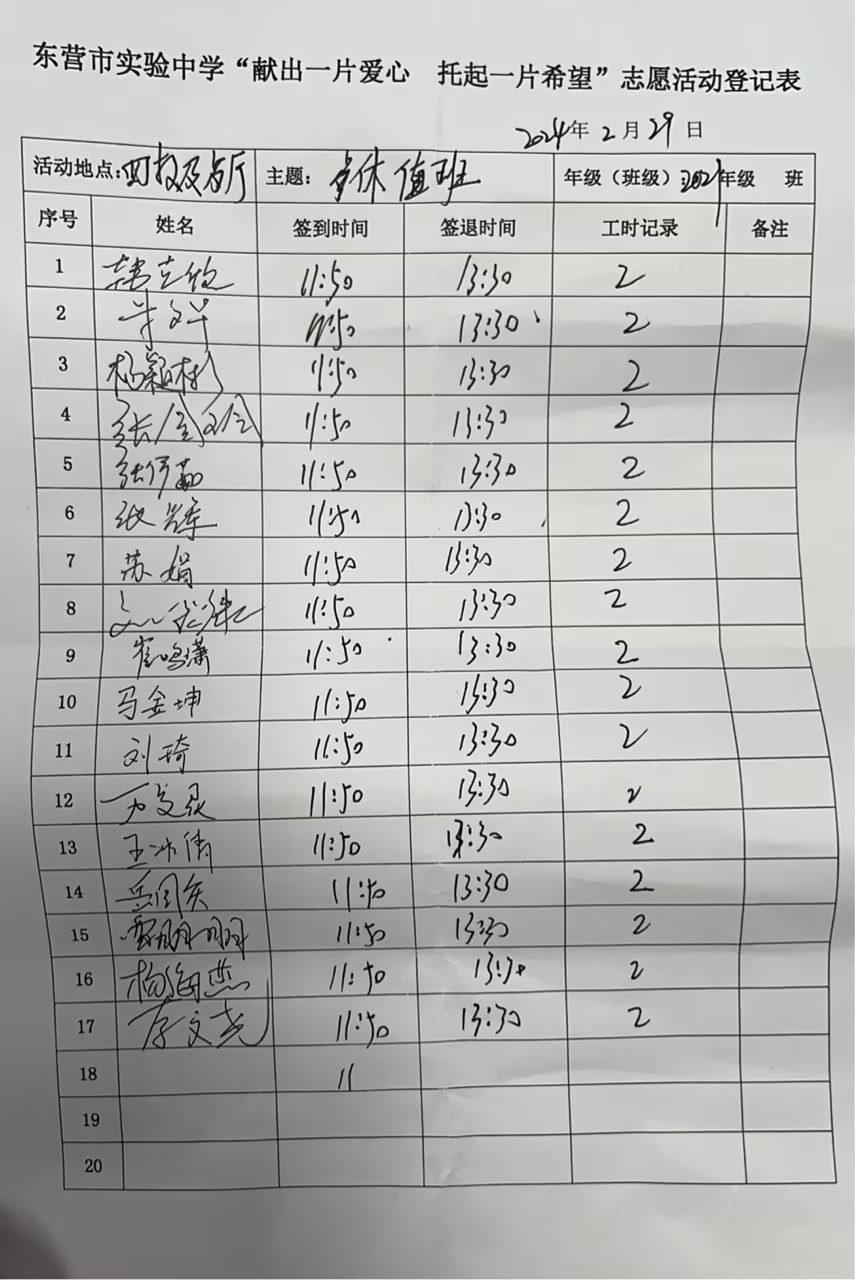 东营市实验中学“献出一片爱心 托起一片希望”志愿活动登记表
2024年 2月 29日
活动地点:四校及客厅 主题: 午休值班 年级（班级）:2021年级 班
序号 姓名 签到时间 签退时间 工时记录 备注
1 11:50 13:30 2
2 11:50 13:30 2
3 杨颖彬 11:50 13:30 2
4 张 11:50 13:30 2
5 张伊茹 11:50 13:30 2
6 张辉 11:50 13:30 2
7 苏娟 11:50 13:30 2
8 11:50 13:30 2
9 崔鸣潇 11:50 13:30 2
10 马金坤 11:50 13:30 2
11 刘琦 11:50 13:30 2
12 11:50 13:30 2
13 王冰倩 11:50 13:30 2
14 11:50 13:30 2
15 11:50 13:30 2
16 杨海燕 11:50 13:30 2
17 李文尧 11:50 13:30 2
18 11
19
20